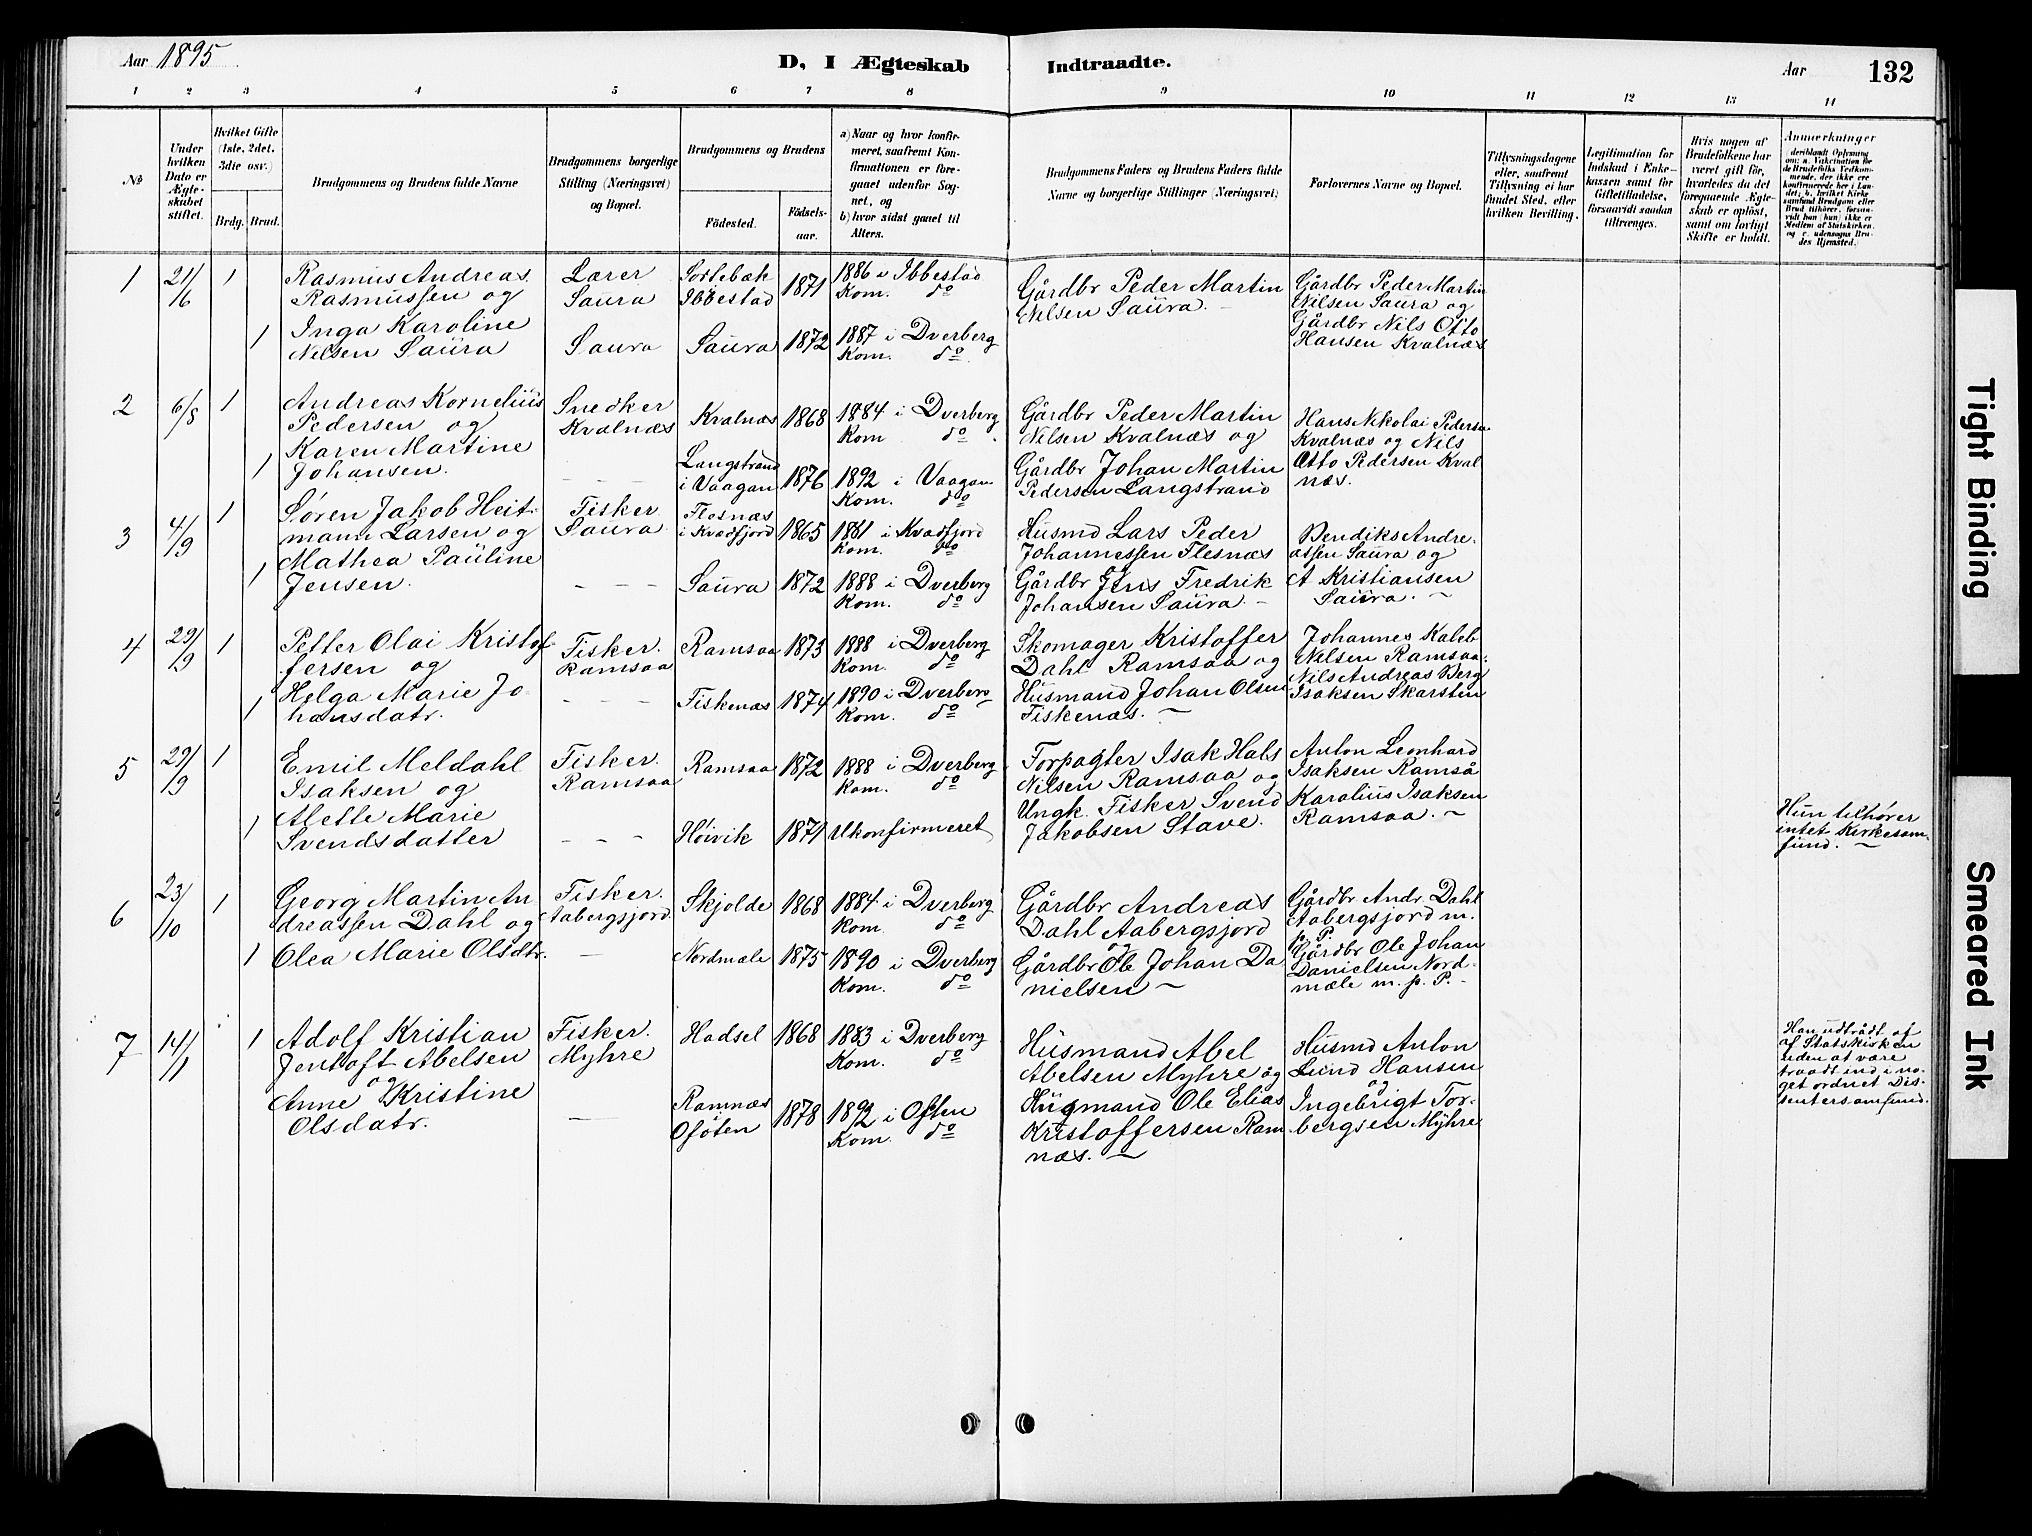 Aar 1895
D, I Ægteskab Indtraadte.
Aar 132
1 2 3 4 5 6 7 8 9 10 11 12 13 14
№
Under hvilken Dato er Ægteskabet stiftet.
Hvilket Gifte (1ste, 2det, 3die osv.)
Brdg. Brud.
Brudgommens og Brudens fulde Navne
Brudgommens borgerlige Stilling (Næringsvei) og Bopæl.
Brudgommens og Brudens
Födested.
Födsels-aar.
a) Naar og hvor konfirmeret, saafremt Konfirmationen er foregaaet udenfor Sognet, og
b) hvor sidst gaaet til Alters.
Brudgommens Faders og Brudens Faders fulde Navne og borgerlige Stillinger (Næringsvei)
Forlovernes Navne og Bopæl.
Tillysningsdagene eller, saafremt Tillysning ei har fundet Sted, efter hvilken Bevilling.
Legitimation for Indskud i Enkekassen samt for Giftetilladelse, forsaavidt saadan tiltrænges.
Hvis nogen af Brudefolkene har været gift för, hvorledes da det foregaaende Ægteskab er oplöst, samt om lovligt Skifte er holdt.
Anmerkninger
1 21/6 1
Rasmus Andreas
Rasmussen og
Lærer
Saura
Ibbestad
1871
1886 i Ibbestad
Kom. do
Gårdbr Peder Martin
Nilsen Saura. -
Gårdbr Peder Martin
Nilsen Saura og
Gårdbr Nils Otto
Hansen Kvalnæs
1
Inga Karoline
Nilsen Saura
Saura
Saura
1872
1887 i Dverberg
Kom. do
2 6/8 1
Andreas Kornelius
Pedersen og
Snedker
Kvalnæs
Kvalnæs
1868
1884 i Dverberg
Kom do
Gårdbr Peder Martin
Nilsen Kvalnæs og
Gårdbr Johan Martin
Pedersen Langstrand
Hans Nikolai Pedersen
Kvalnæs og Nils
Otto Pedersen Kval
næs.
1
Karen Martine
Johansen.
Langstrand
i Vaagan
1876
1892 i Vaagan
Kom. do
3 4/9 1
Søren Jakob Heit-
mann Larsen og
Fisker
Saura
Flesnæs
i Kvædfjord
1865
1881 i Kvædfjord
Kom. do
Husmd Lars Peder
Johannessen Flesnæs
og
Gårdbr Jens Fredrik
Johansen Saura. -
Bendiks Andre-
assen Saura og
A Kristiansen
Saura. -
1
Mathea Pauline
Jensen.
- - -
Saura
1872
1888 i Dverberg
Kom. do
4 29/9 1
Petter Olai Kristof-
fersen og
Fisker.
Ramsaa
Ramsaa
1873
1888 i Dverberg
Kom. do
Skomager Kristoffer
Dahl Ramsaa og
Husmand Johan Olsen
Fiskenæs. -
Johannes Kaleb
Nilsen Ramsaa.
Nils Andreas Berg
Isaksen Skarsten
1
Helga Marie Jo-
hansdatr.
- - -
Fiskenæs
1874
1890 i Dverberg
Kom. do
5 29/9 1
Emil Meldahl
Isaksen og
Fisker.
Ramsaa
Ramsaa
1872
1888 i Dverberg
Kom. do
Forpagter Isak Hals
Nilsen Ramsaa og
Ungk. Fisker Svend
Jakobsen Stave.
Anton Leonhard
Isaksen Ramså
Karolius Isaksen
Ramsaa. -
1
Mette Marie
Svendsdatter
- - -
Høivik
1871
Ukonfirmeret
Hun tilhører
intet Kirkesam-
fund. -
6 23/10 1
Georg Martin An
dreassen Dahl og
Fisker.
Aabergsjord.
Skjolde
1868
1884 i Dverberg
Kom. do
Gårdbr Andreas
Dahl Aabergsjord
og
Gårdbr Ole Johan Da
nielsen -
Gårdbr Andr. Dahl
Aabergsjord m.
p. P.
Gårdbr Ole Johan
Danielsen Nord-
mæle m. p. P. -
1
Olea Marie Olsdtr.
-
Nordmæle
1875
1890 i Dverberg
Kom. do
7 1
Adolf Kristian
Jentoft Abelsen
og
Fisker.
Myhre
Hadsel
1868
1883 i Dverberg
Kom. do
Husmand Abel
Abelsen Myhre og
Husmand Ole Elias
Kristoffersen Ram
næs. -
Husmd Anton
Lund Hansen
og
Ingebrigt Tor-
bergsen Myhre
Han udtrådt af
af Statskirken
uden at være
traadt ind i no-
get ordnet Dis-
sentersamfund.
Anne Kristine
Olsdatr.
-
Ramnæs
Ofoten
1878
1892 i Ofoten
Kom. do
Tight Binding
Smeared Ink